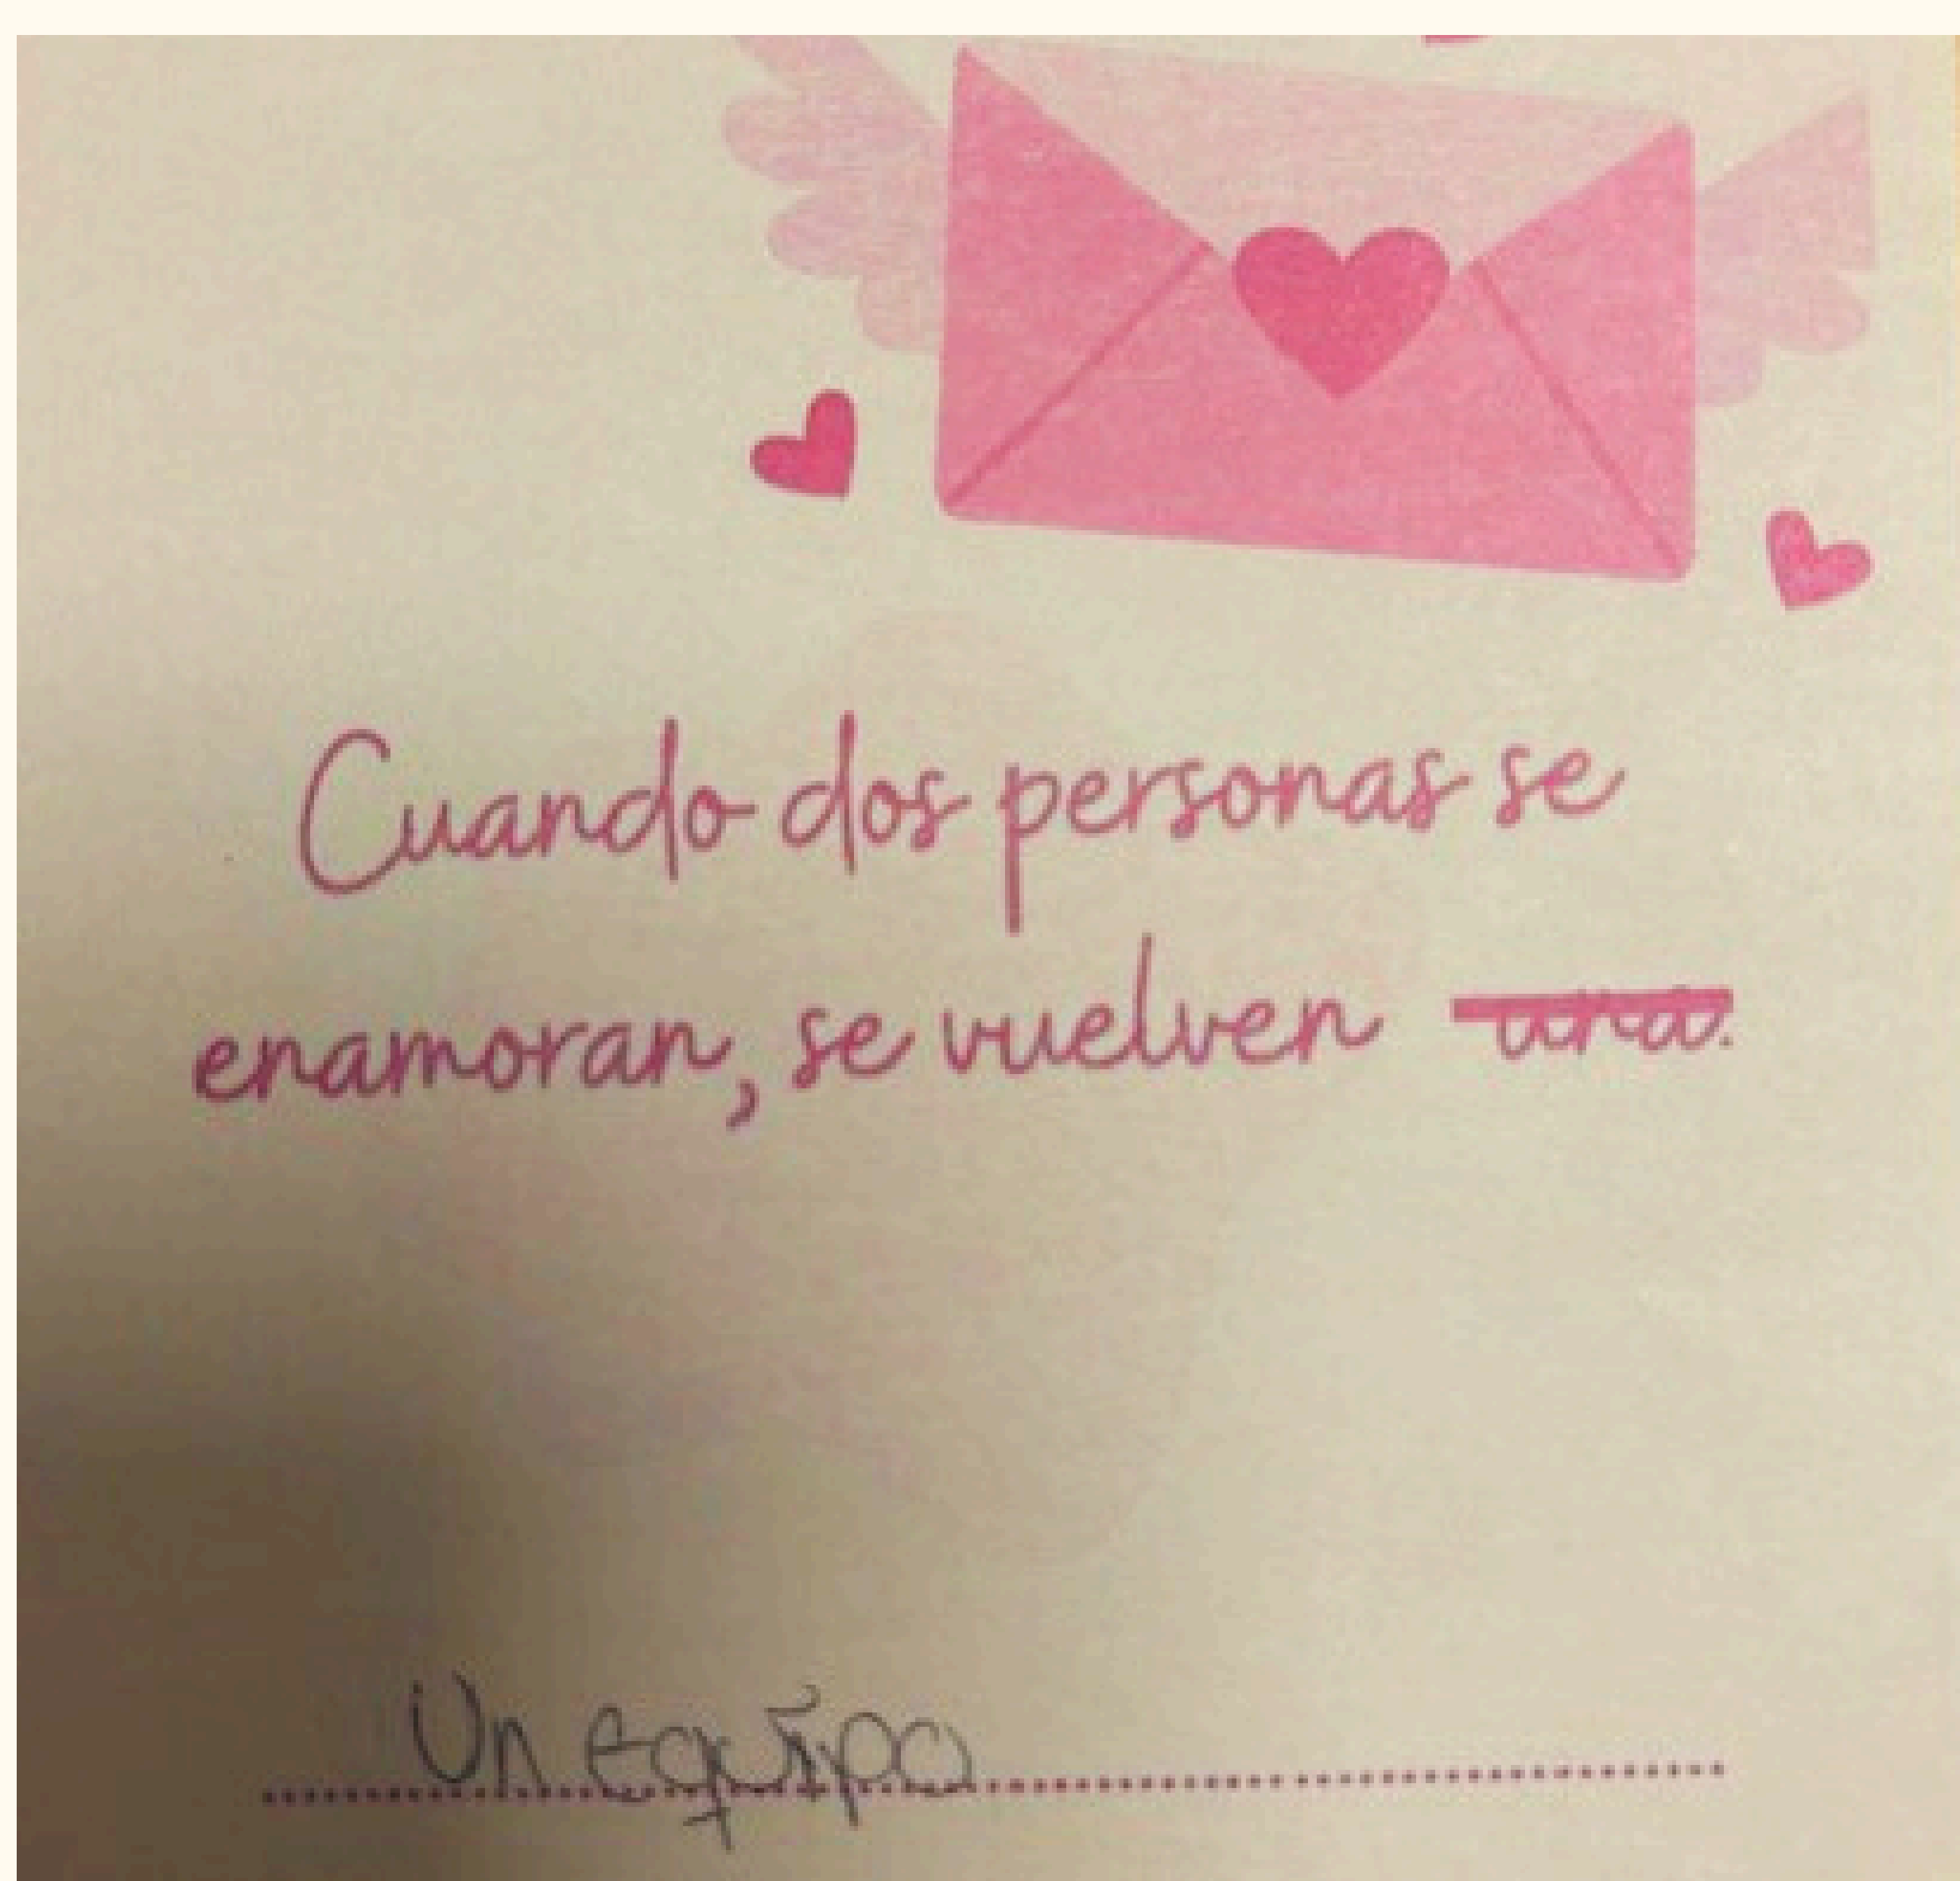 Cuando dos personas se
enamoran, se vuelven una.
Un equipo